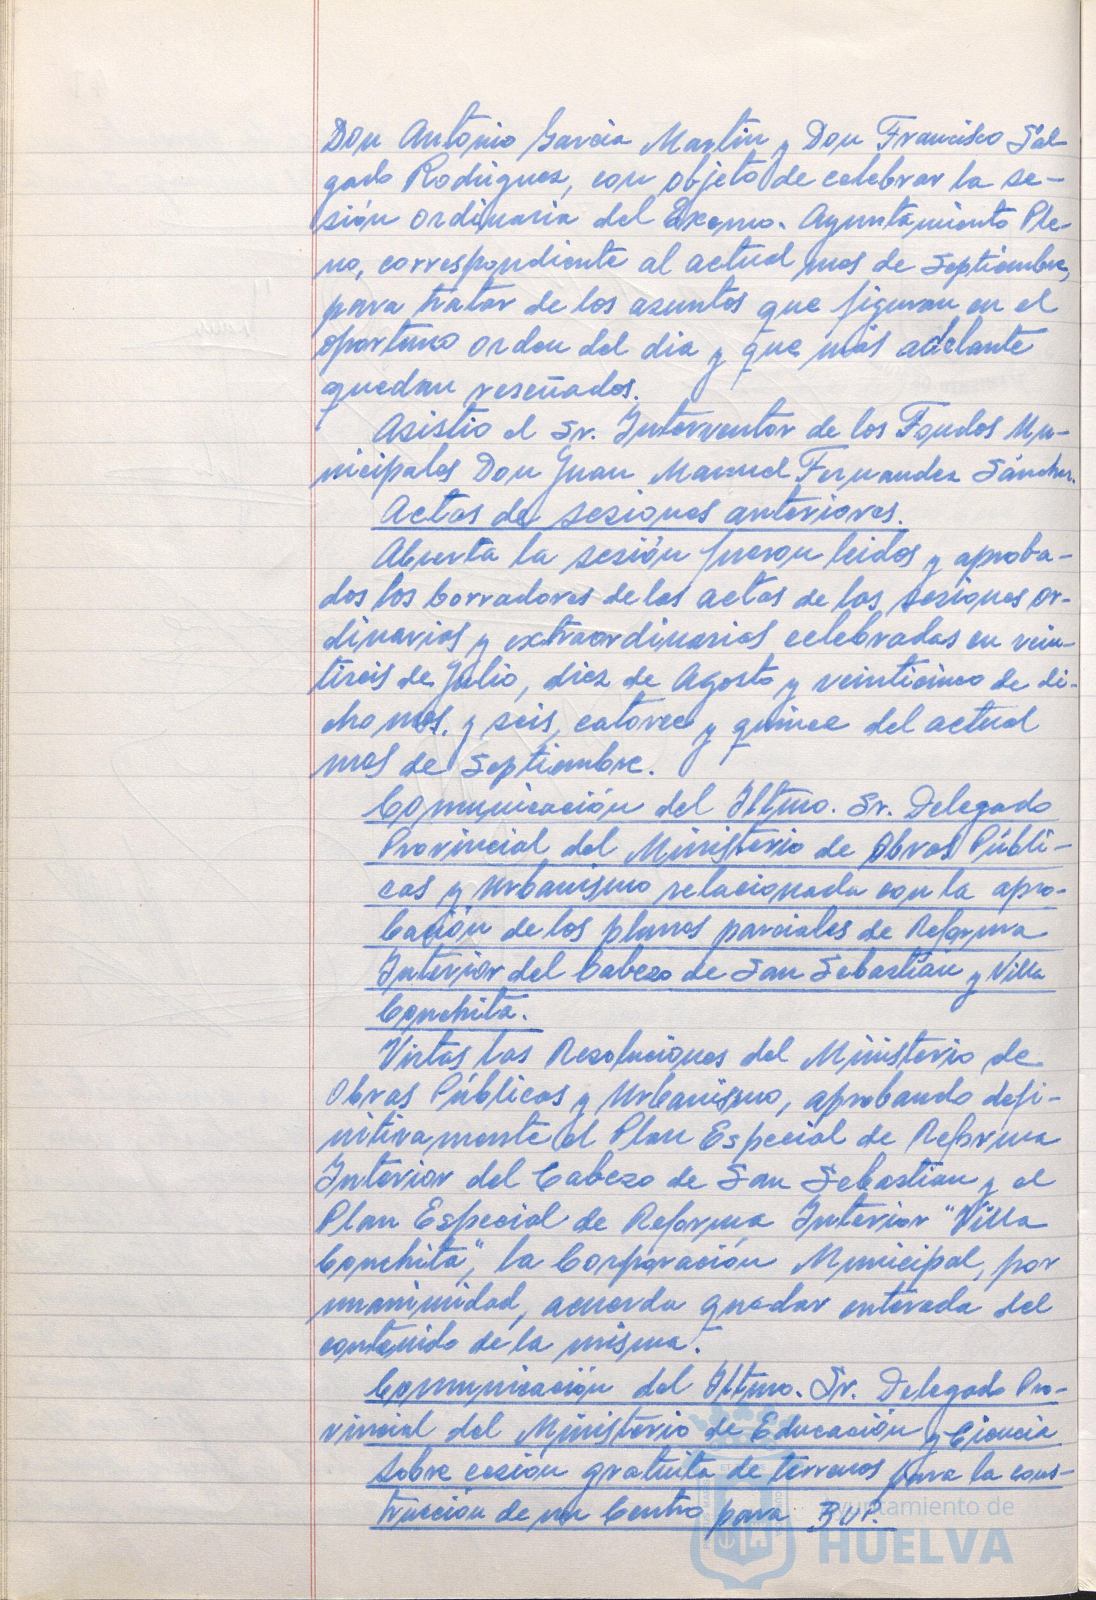 Don Antonio García Martín y Don Francisco Sal-
gado Rodriguez, con objeto de celebrar la se-
sión ordinaria del Excmo. Ayuntamiento Ple-
no, correspondiente al actual mes de Septiembre,
para tratar de los asuntos que figuran en el
oportuno orden del dia y que más adelante
quedan reseñados.
Asistio el Sr. Interventor de los Fondos Mu-
nicipales Don Juan Manuel Fernandez Sánchez.
Actas de sesiones anteriores.
Abierta la sesión fueron leidos y aproba-
dos los borradores de las actas de las sesiones or-
dinarias y extraordinarias celebradas en vein-
tiseis de Julio, diez de Agosto y veinticinco de di-
cho mes, y seis, catorce y quince del actual
mes de Septiembre.
Comunicación del Iltmo. Sr. Delegado
Provincial del Ministerio de Obras Públi-
cas y Urbanismo relacionada con la apro-
bación de los planos parciales de Reforma
Interior del Cabezo de San Sebastián y Villa
Conchita.
Vistas las Resoluciones del Ministerio de
Obras Públicas y Urbanismo, aprobando defi-
nitivamente el Plan Especial de Reforma
Interior del Cabezo de San Sebastian y el
Plan Especial de Reforma Interior "Villa
Conchita", la Corporación Municipal, por
unanimidad, acuerda quedar enterada del
contenido de la misma.
Comunicación del Iltmo. Sr. Delegado Pro-
vincial del Ministerio de Educación y Ciencia
sobre cesión gratuita de terrenos para la cons-
trucción de un Centro para BUP.
Ayuntamiento de
HUELVA